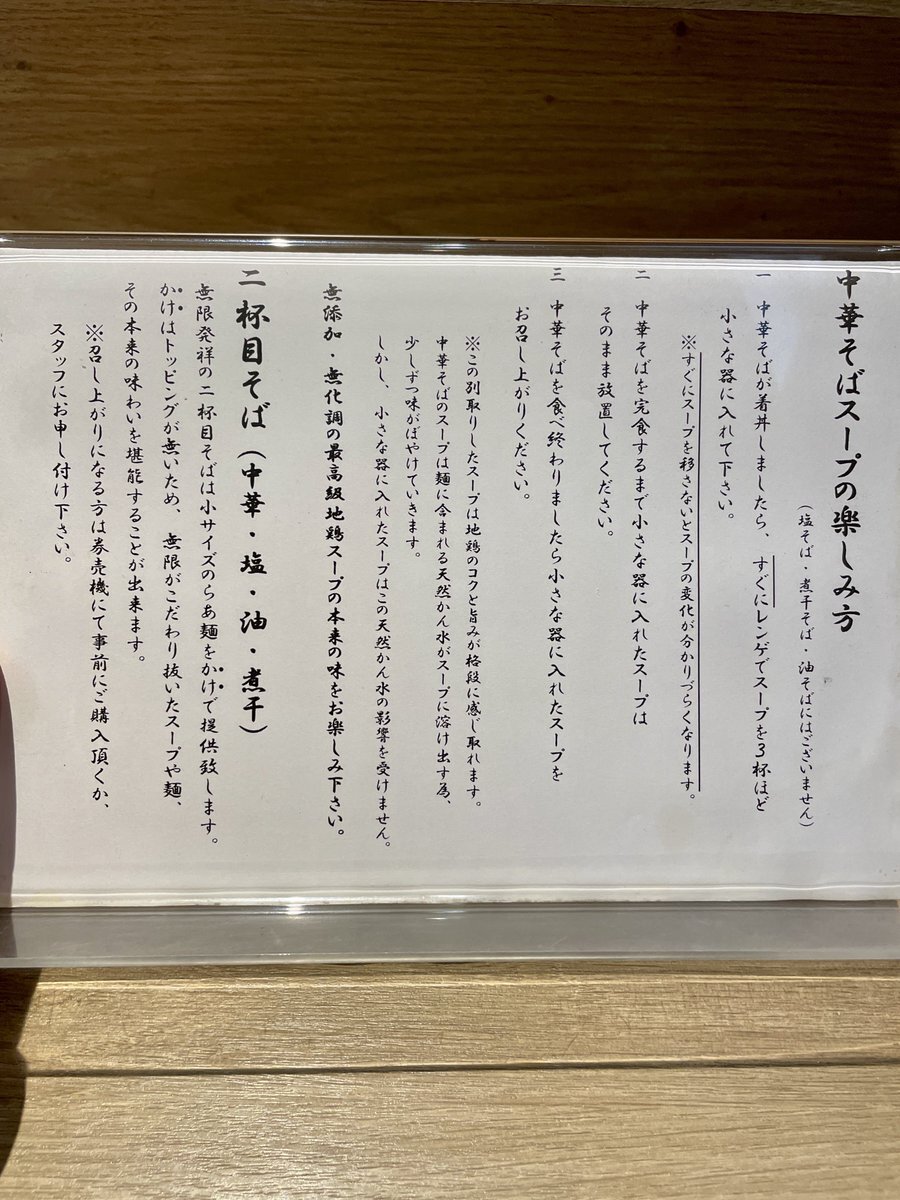 中華そばスープの楽しみ方
(塩そば・煮干そば・油そばにはございません)
一 中華そばが着丼しましたら、すぐにレンゲでスープを3杯ほど
小さな器に入れて下さい。
※すぐにスープを移さないとスープの変化が分かりづらくなります。
二 中華そばを完食するまで小さな器に入れたスープは
そのまま放置してください。
三 中華そばを食べ終わりましたら小さな器に入れたスープを
お召し上がりください。
※この別取りしたスープは地鶏のコクと旨みが格段に感じ取れます。
中華そばのスープは麺に含まれる天然かん水がスープに溶け出す為、
少しずつ味がぼやけていきます。
しかし、小さな器に入れたスープはこの天然かん水の影響を受けません。
無添加・無化調の最高級地鶏スープの本来の味をお楽しみ下さい。
二杯目そば(中華・塩・油・煮干)
無限発祥の二杯目そばは小サイズのらぁ麺をかけで提供致します。
かけはトッピングが無いため、無限がこだわり抜いたスープや麺、
その本来の味わいを堪能することが出来ます。
※召し上がりになる方は券売機にて事前にご購入頂くか、
スタッフにお申し付け下さい。